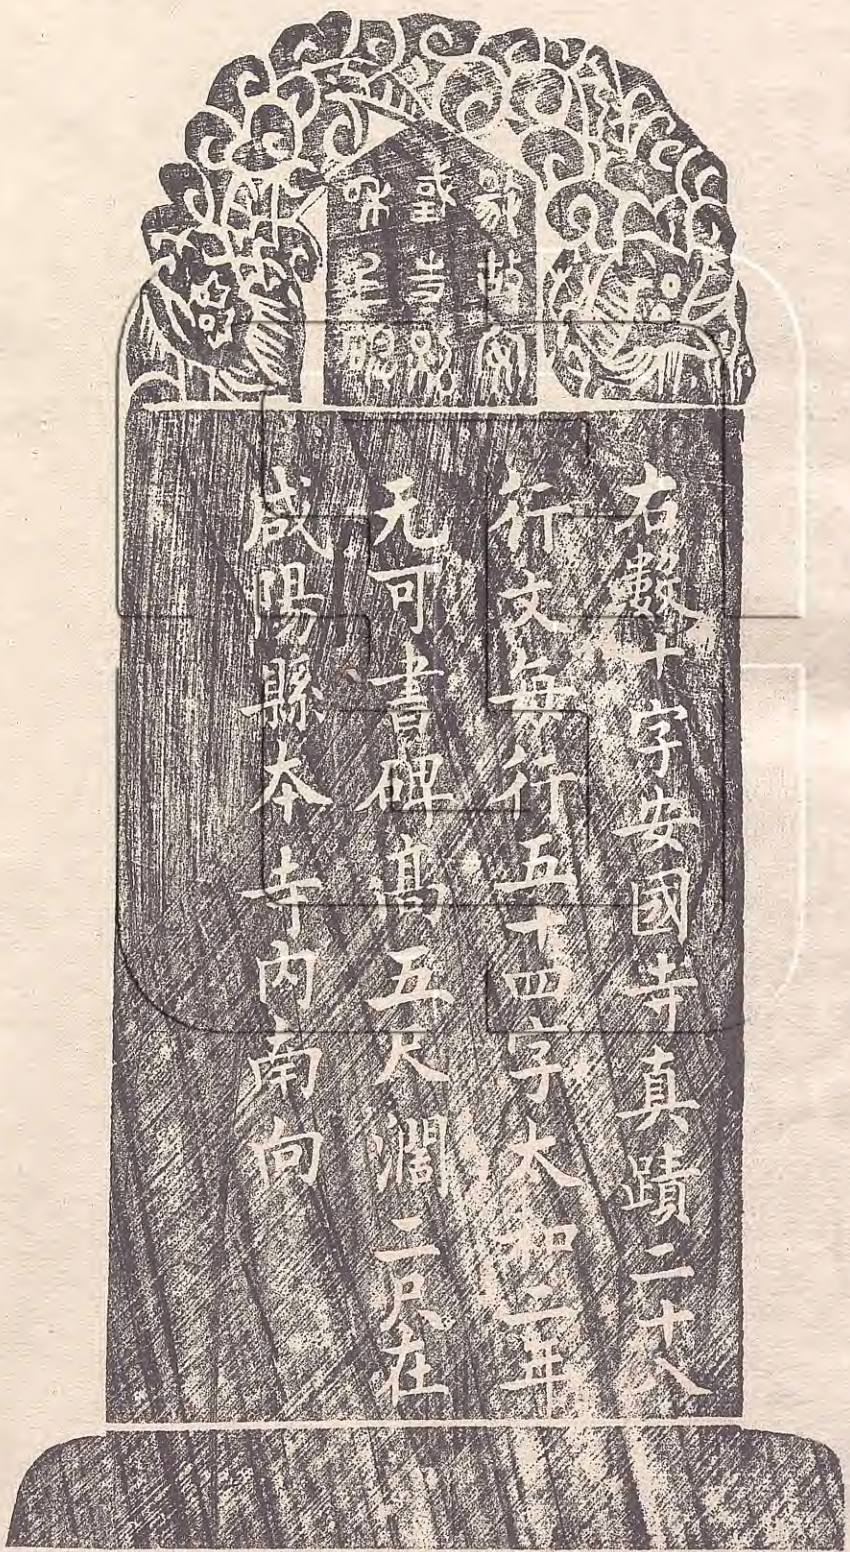 右數十字安國寺真蹟二十八
行文每行五十四字太和二年
无可書碑高五尺濶二尺在
咸陽縣本寺內南向